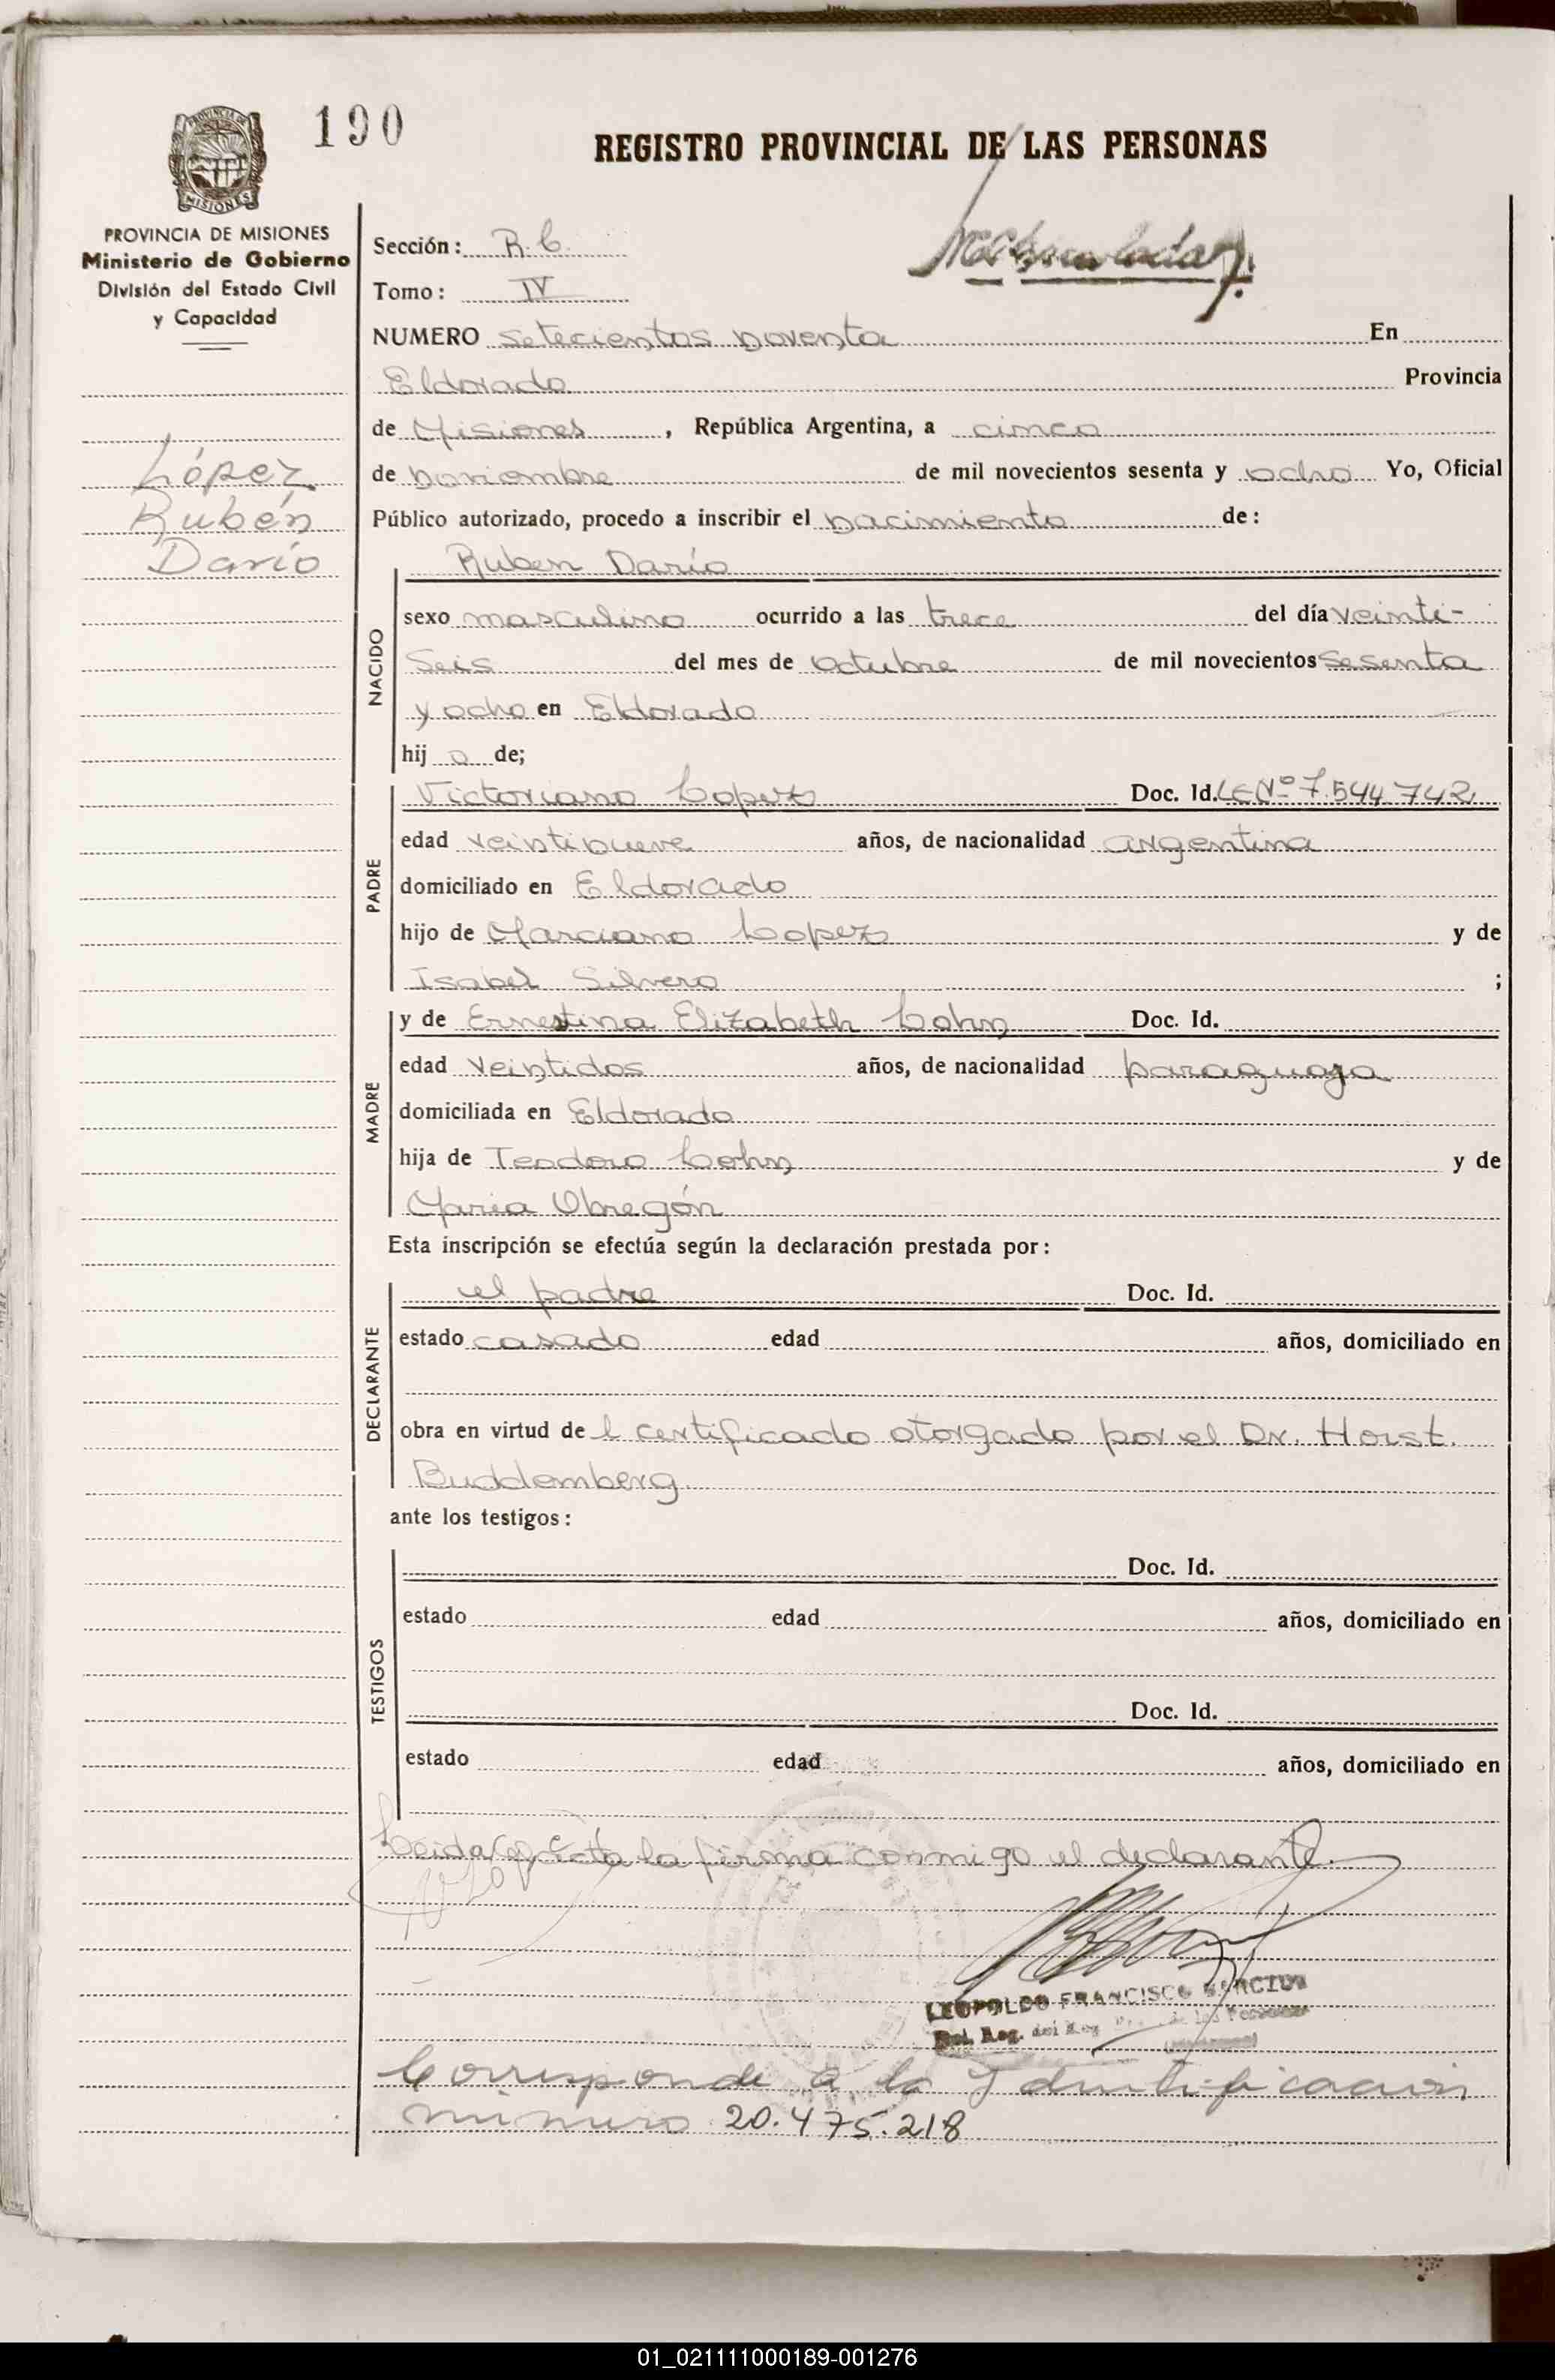 190
REGISTRO PROVINCIAL DE LAS PERSONAS
PROVINCIA DE MISIONES
Ministerio de Gobierno
División del Estado Civil
y Capacidad
López
Rubén
Darío
Sección: R.C.
Tomo: IV
NUMERO setecientos noventa En
Eldorado Provincia
de Misiones, República Argentina, a cinco
de noviembre de mil novecientos sesenta y ocho Yo, Oficial
Público autorizado, procedo a inscribir el nacimiento de:
NACIDO
Ruben Darío
sexo masculino ocurrido a las trece del día veinti-
seis del mes de octubre de mil novecientos sesenta
y ocho en Eldorado
hij o de;
PADRE
Victoriano Lopez Doc. Id. LE Nº 7.544.742
edad veintinueve años, de nacionalidad argentina
domiciliado en Eldorado
hijo de Marciano Lopez y de
Isabel Silvero ;
MADRE
y de Ernestina Elizabeth Cohn Doc. Id.
edad veintidos años, de nacionalidad paraguaya
domiciliada en Eldorado
hija de Teodoro Cohn y de
Maria Obregón
Esta inscripción se efectúa según la declaración prestada por:
DECLARANTE
el padre Doc. Id.
estado casado edad años, domiciliado en
obra en virtud de l certificado otorgado por el Dr. Horst
Buddemberg
ante los testigos:
TESTIGOS
Doc. Id.
estado edad años, domiciliado en
Doc. Id.
estado edad años, domiciliado en
Leida la firma conmigo el declarante.
LEOPOLDO FRANCISCO
Corresponde a la Identificacion
número 20.475.218
01_021111000189-001276